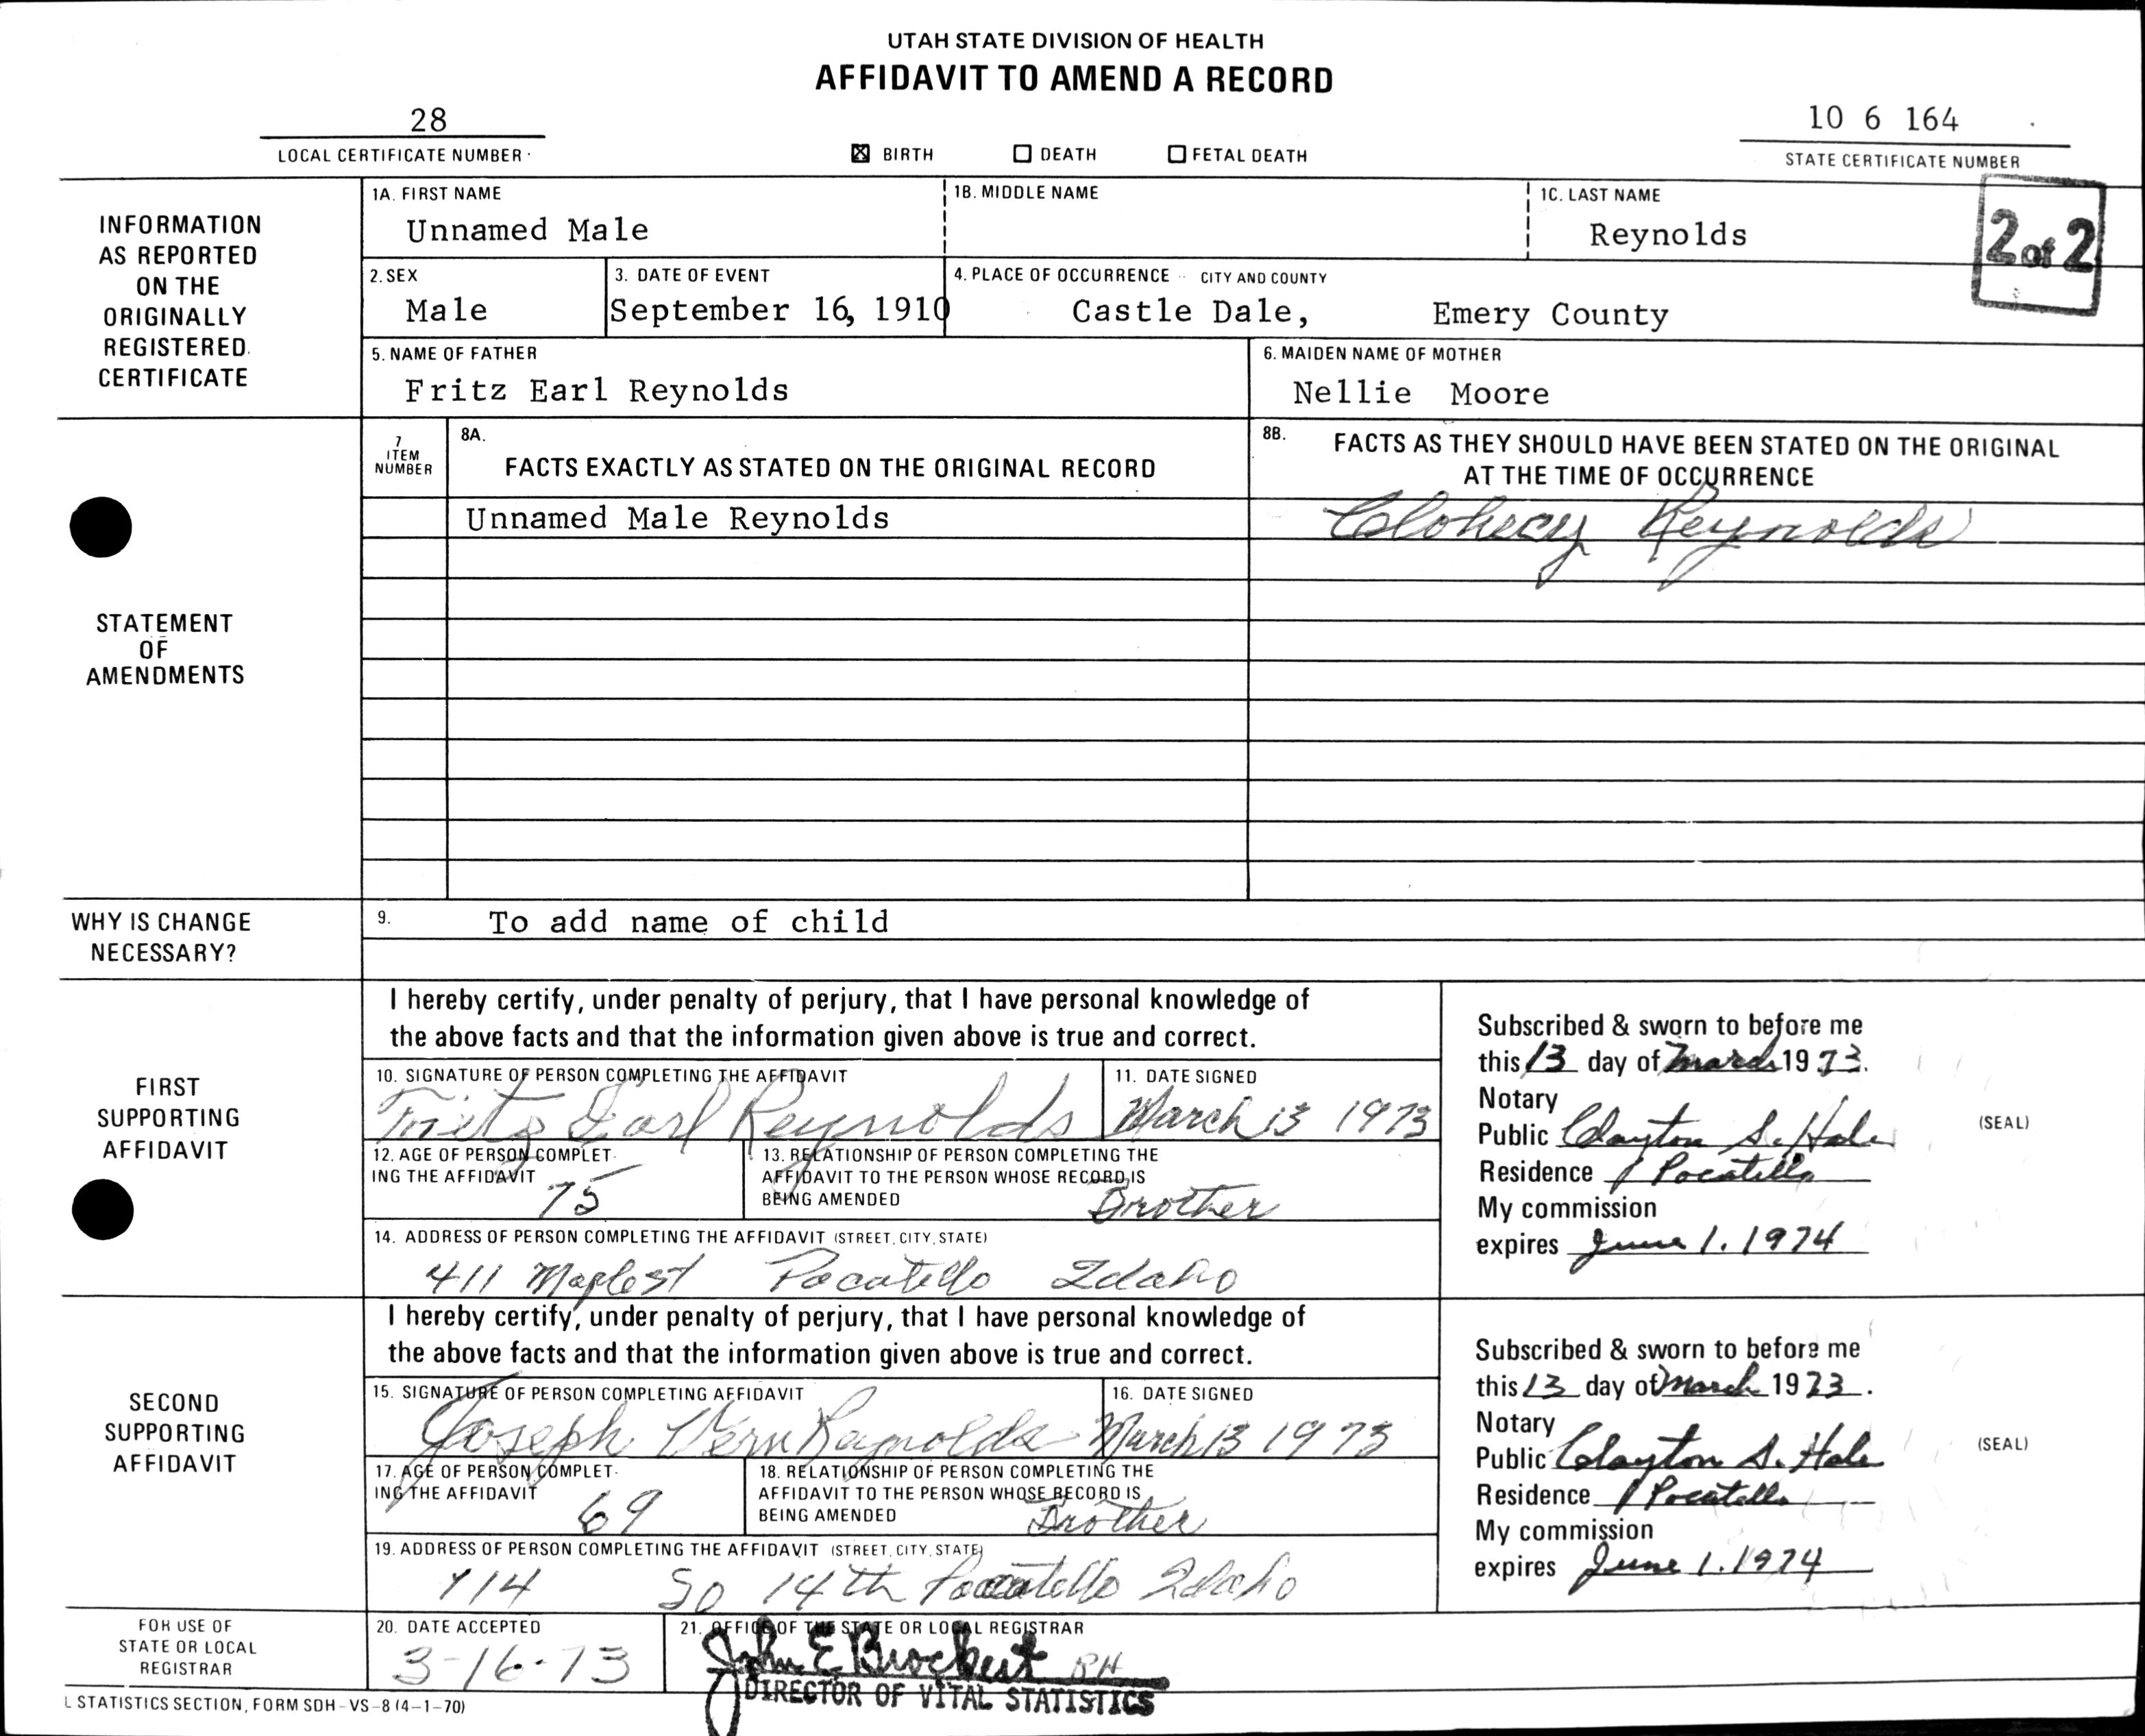 UTAH STATE DIVISION OF HEALTH
AFFIDAVIT TO AMEND A RECORD
28
LOCAL CERTIFICATE NUMBER
☒ BIRTH ☐ DEATH ☐ FETAL DEATH
10 6 164
STATE CERTIFICATE NUMBER
2 of 2
INFORMATION
AS REPORTED
ON THE
ORIGINALLY
REGISTERED
CERTIFICATE
1A. FIRST NAME 1B. MIDDLE NAME 1C. LAST NAME
Unnamed Male Reynolds
2. SEX 3. DATE OF EVENT 4. PLACE OF OCCURRENCE -- CITY AND COUNTY
Male September 16, 1910 Castle Dale, Emery County
5. NAME OF FATHER 6. MAIDEN NAME OF MOTHER
Fritz Earl Reynolds Nellie Moore
STATEMENT
OF
AMENDMENTS
7
ITEM
NUMBER
8A.
FACTS EXACTLY AS STATED ON THE ORIGINAL RECORD
8B. FACTS AS THEY SHOULD HAVE BEEN STATED ON THE ORIGINAL
AT THE TIME OF OCCURRENCE
Unnamed Male Reynolds Clohecy Reynolds
WHY IS CHANGE
NECESSARY?
9. To add name of child
FIRST
SUPPORTING
AFFIDAVIT
I hereby certify, under penalty of perjury, that I have personal knowledge of
the above facts and that the information given above is true and correct.
10. SIGNATURE OF PERSON COMPLETING THE AFFIDAVIT 11. DATE SIGNED
Fritz Earl Reynolds March 13 1973
12. AGE OF PERSON COMPLET-
ING THE AFFIDAVIT
75
13. RELATIONSHIP OF PERSON COMPLETING THE
AFFIDAVIT TO THE PERSON WHOSE RECORD IS
BEING AMENDED Brother
14. ADDRESS OF PERSON COMPLETING THE AFFIDAVIT (STREET, CITY, STATE)
411 Maple st Pocatello Idaho
Subscribed & sworn to before me
this 13 day of March 1973.
Notary
Public Clayton S. Hale
(SEAL)
Residence Pocatello
My commission
expires June 1. 1974
SECOND
SUPPORTING
AFFIDAVIT
I hereby certify, under penalty of perjury, that I have personal knowledge of
the above facts and that the information given above is true and correct.
15. SIGNATURE OF PERSON COMPLETING AFFIDAVIT 16. DATE SIGNED
Joseph Vern Reynolds March 13 1973
17. AGE OF PERSON COMPLET-
ING THE AFFIDAVIT
69
18. RELATIONSHIP OF PERSON COMPLETING THE
AFFIDAVIT TO THE PERSON WHOSE RECORD IS
BEING AMENDED Brother
19. ADDRESS OF PERSON COMPLETING THE AFFIDAVIT (STREET, CITY, STATE)
So 14th Pocatello Idaho
Subscribed & sworn to before me
this 13 day of March 1973.
Notary
Public Clayton S. Hale
(SEAL)
Residence Pocatello
My commission
expires June 1. 1974
FOR USE OF
STATE OR LOCAL
REGISTRAR
20. DATE ACCEPTED
3-16-73
21. OFFICE OF THE STATE OR LOCAL REGISTRAR
John E Brockert RH
DIRECTOR OF VITAL STATISTICS
L STATISTICS SECTION, FORM SDH-VS-8 (4-1-70)